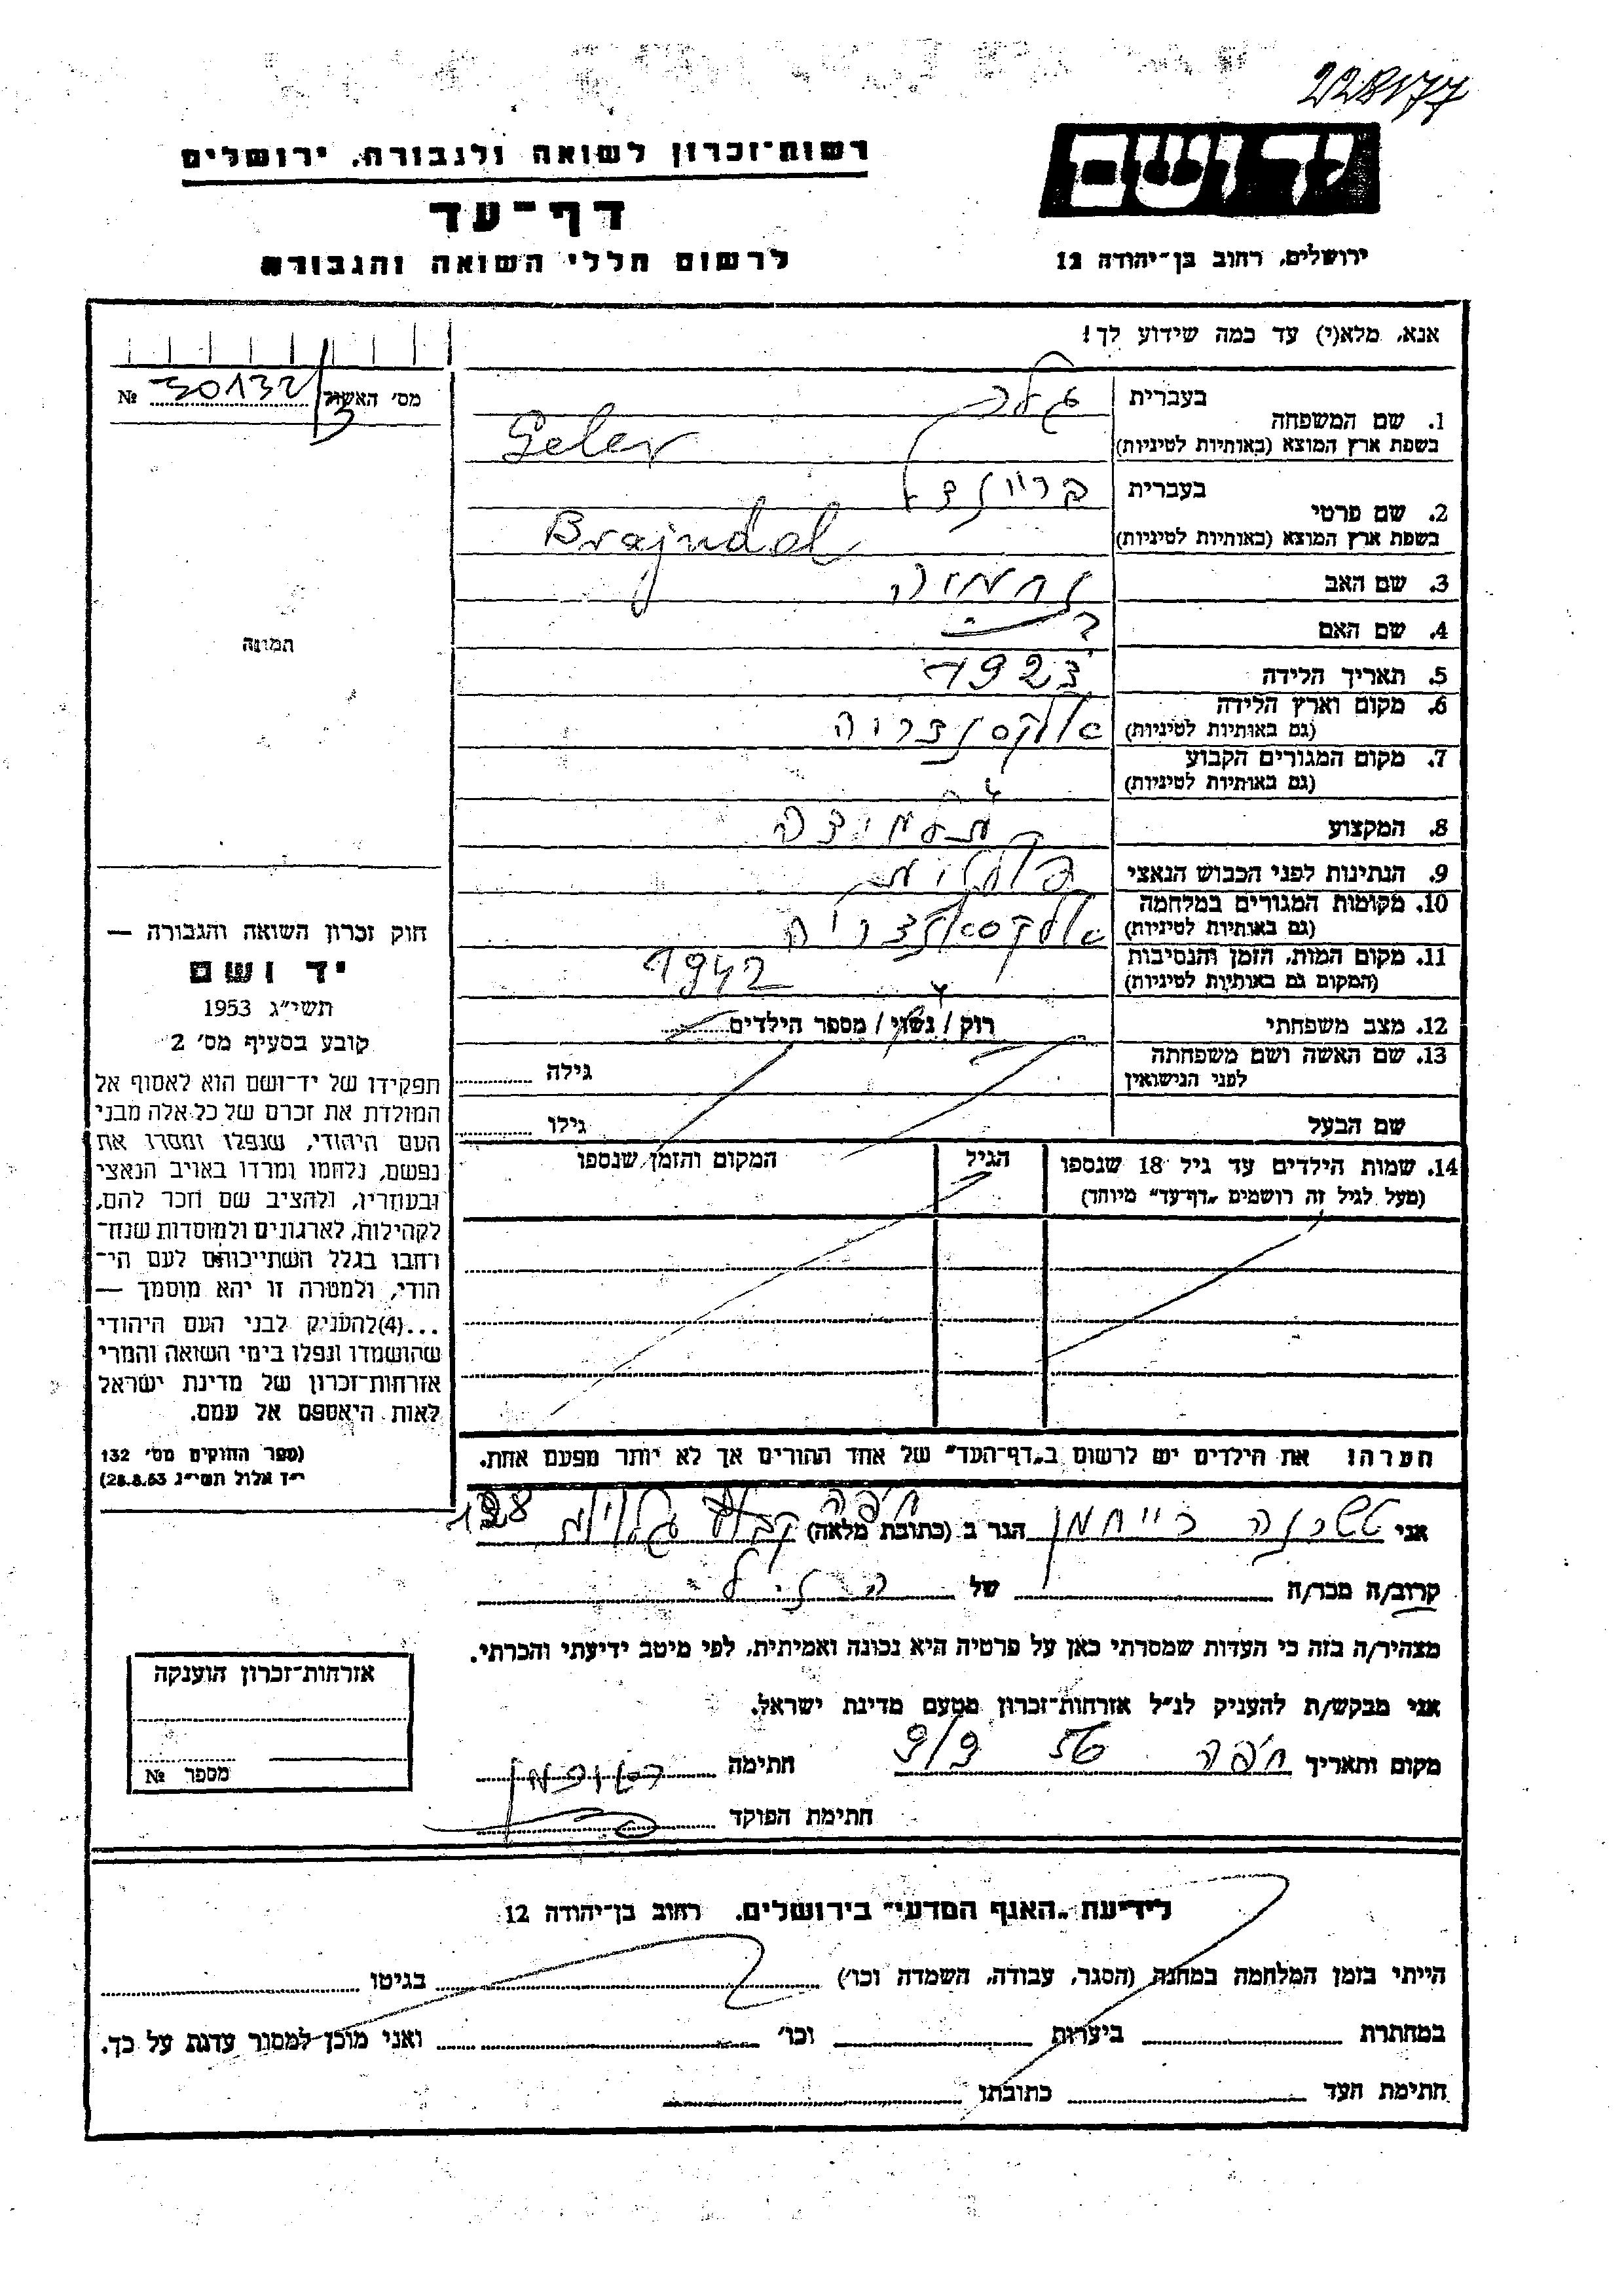 228177
רשות־זכרון לשואה ולגבורה, ירושלים
דף־עד
לרשום חללי השואה והגבורה
יד ושם
ירושלים, רחוב בן־יהודה 12
אנא, מלא(י) עד כמה שידוע לך!
מס׳ האשור № 30132
1. שם המשפחה בעברית גלר
בשפת ארץ המוצא (באותיות לטיניות) Geler
2. שם פרטי בעברית בריינדל
בשפת ארץ המוצא (באותיות לטיניות) Brajndel
3. שם האב נחמיה
4. שם האם
5. תאריך הלידה 1923
6. מקום וארץ הלידה (גם באותיות לטיניות) אלקסנדריה
7. מקום המגורים הקבוע (גם באותיות לטיניות)
8. המקצוע תלמידה
9. הנתינות לפני הכבוש הנאצי פולנית
10. מקומות המגורים במלחמה (גם באותיות לטיניות) אלקסאנדריה
11. מקום המות, הזמן והנסיבות (המקום גם באותיות לטיניות) 1942
12. מצב משפחתי רוק / נשוי / מספר הילדים
13. שם האשה ושם משפחתה לפני הנישואין גילה
שם הבעל גילו
14. שמות הילדים עד גיל 18 שנספו (מעל לגיל זה רושמים „דף־עד״ מיוחד)
הגיל
המקום והזמן שנספו
הערה! את הילדים יש לרשום ב„דף־העד״ של אחד ההורים אך לא יותר מפעם אחת.
תמונה
חוק זכרון השואה והגבורה —
יד ושם
תשי״ג 1953
קובע בסעיף מס׳ 2
תפקידו של יד־ושם הוא לאסוף אל
המולדת את זכרם של כל אלה מבני
העם היהודי, שנפלו ומסרו את
נפשם, נלחמו ומרדו באויב הנאצי
ובעוזריו, ולהציב שם וזכר להם,
לקהילות, לארגונים ולמוסדות שנח־
רבו בגלל השתייכותם לעם הי־
הודי, ולמטרה זו יהא מוסמך —
...(4)להעניק לבני העם היהודי
שהושמדו ונפלו בימי השואה והמרי
אזרחות־זכרון של מדינת ישראל
לאות היאספם אל עמם.
(ספר החוקים מס׳ 132
י״ד אלול תשי״ג 28.8.53)
אני רייחמן הגר ב (כתובת מלאה) חיפה קבוץ גלויות 128
קרוב/ה מכר/ה של הנ״ל
מצהיר/ה בזה כי העדות שמסרתי כאן על פרטיה היא נכונה ואמיתית, לפי מיטב ידיעתי והכרתי.
אני מבקש/ת להעניק לנ״ל אזרחות־זכרון מטעם מדינת ישראל.
מקום ותאריך חיפה 56 9/9 חתימה
חתימת הפוקד
אזרחות־זכרון הוענקה
מספר №
לידיעת „האגף המדעי״ בירושלים, רחוב בן־יהודה 12
הייתי בזמן המלחמה במחנה (הסגר, עבודה, השמדה וכו׳) בגיטו
במחתרת ביערות וכו׳ ואני מוכן למסור עדות על כך.
חתימת העד כתובתו